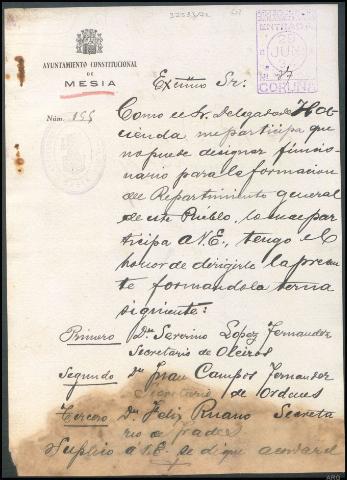 32533/22
AYUNTAMIENTO CONSTITUCIONAL
DE
MESIA
Núm. 155
ENTRADA
JUN
CORUÑA
Exmmo Sr.
Como el Sr. Delegado de Ha
cienda me participa que
no puede designar funcio
nario para la formacion
del Repartimiento general
de este Pueblo, lo que par
ticipa a V.E., tengo el
honor de dirigirle la presen
te formandola terna
siguiente:
Primero Dn Severino Lopez Fernandez
Secretario de Oleiros
Segundo Dn Juan Campos Fernandez
Secretario de Ordenes
Tercero Dn Felix Ruano Secreta
rio de Frades
Suplico a V.E. se digne acordar el
ARG